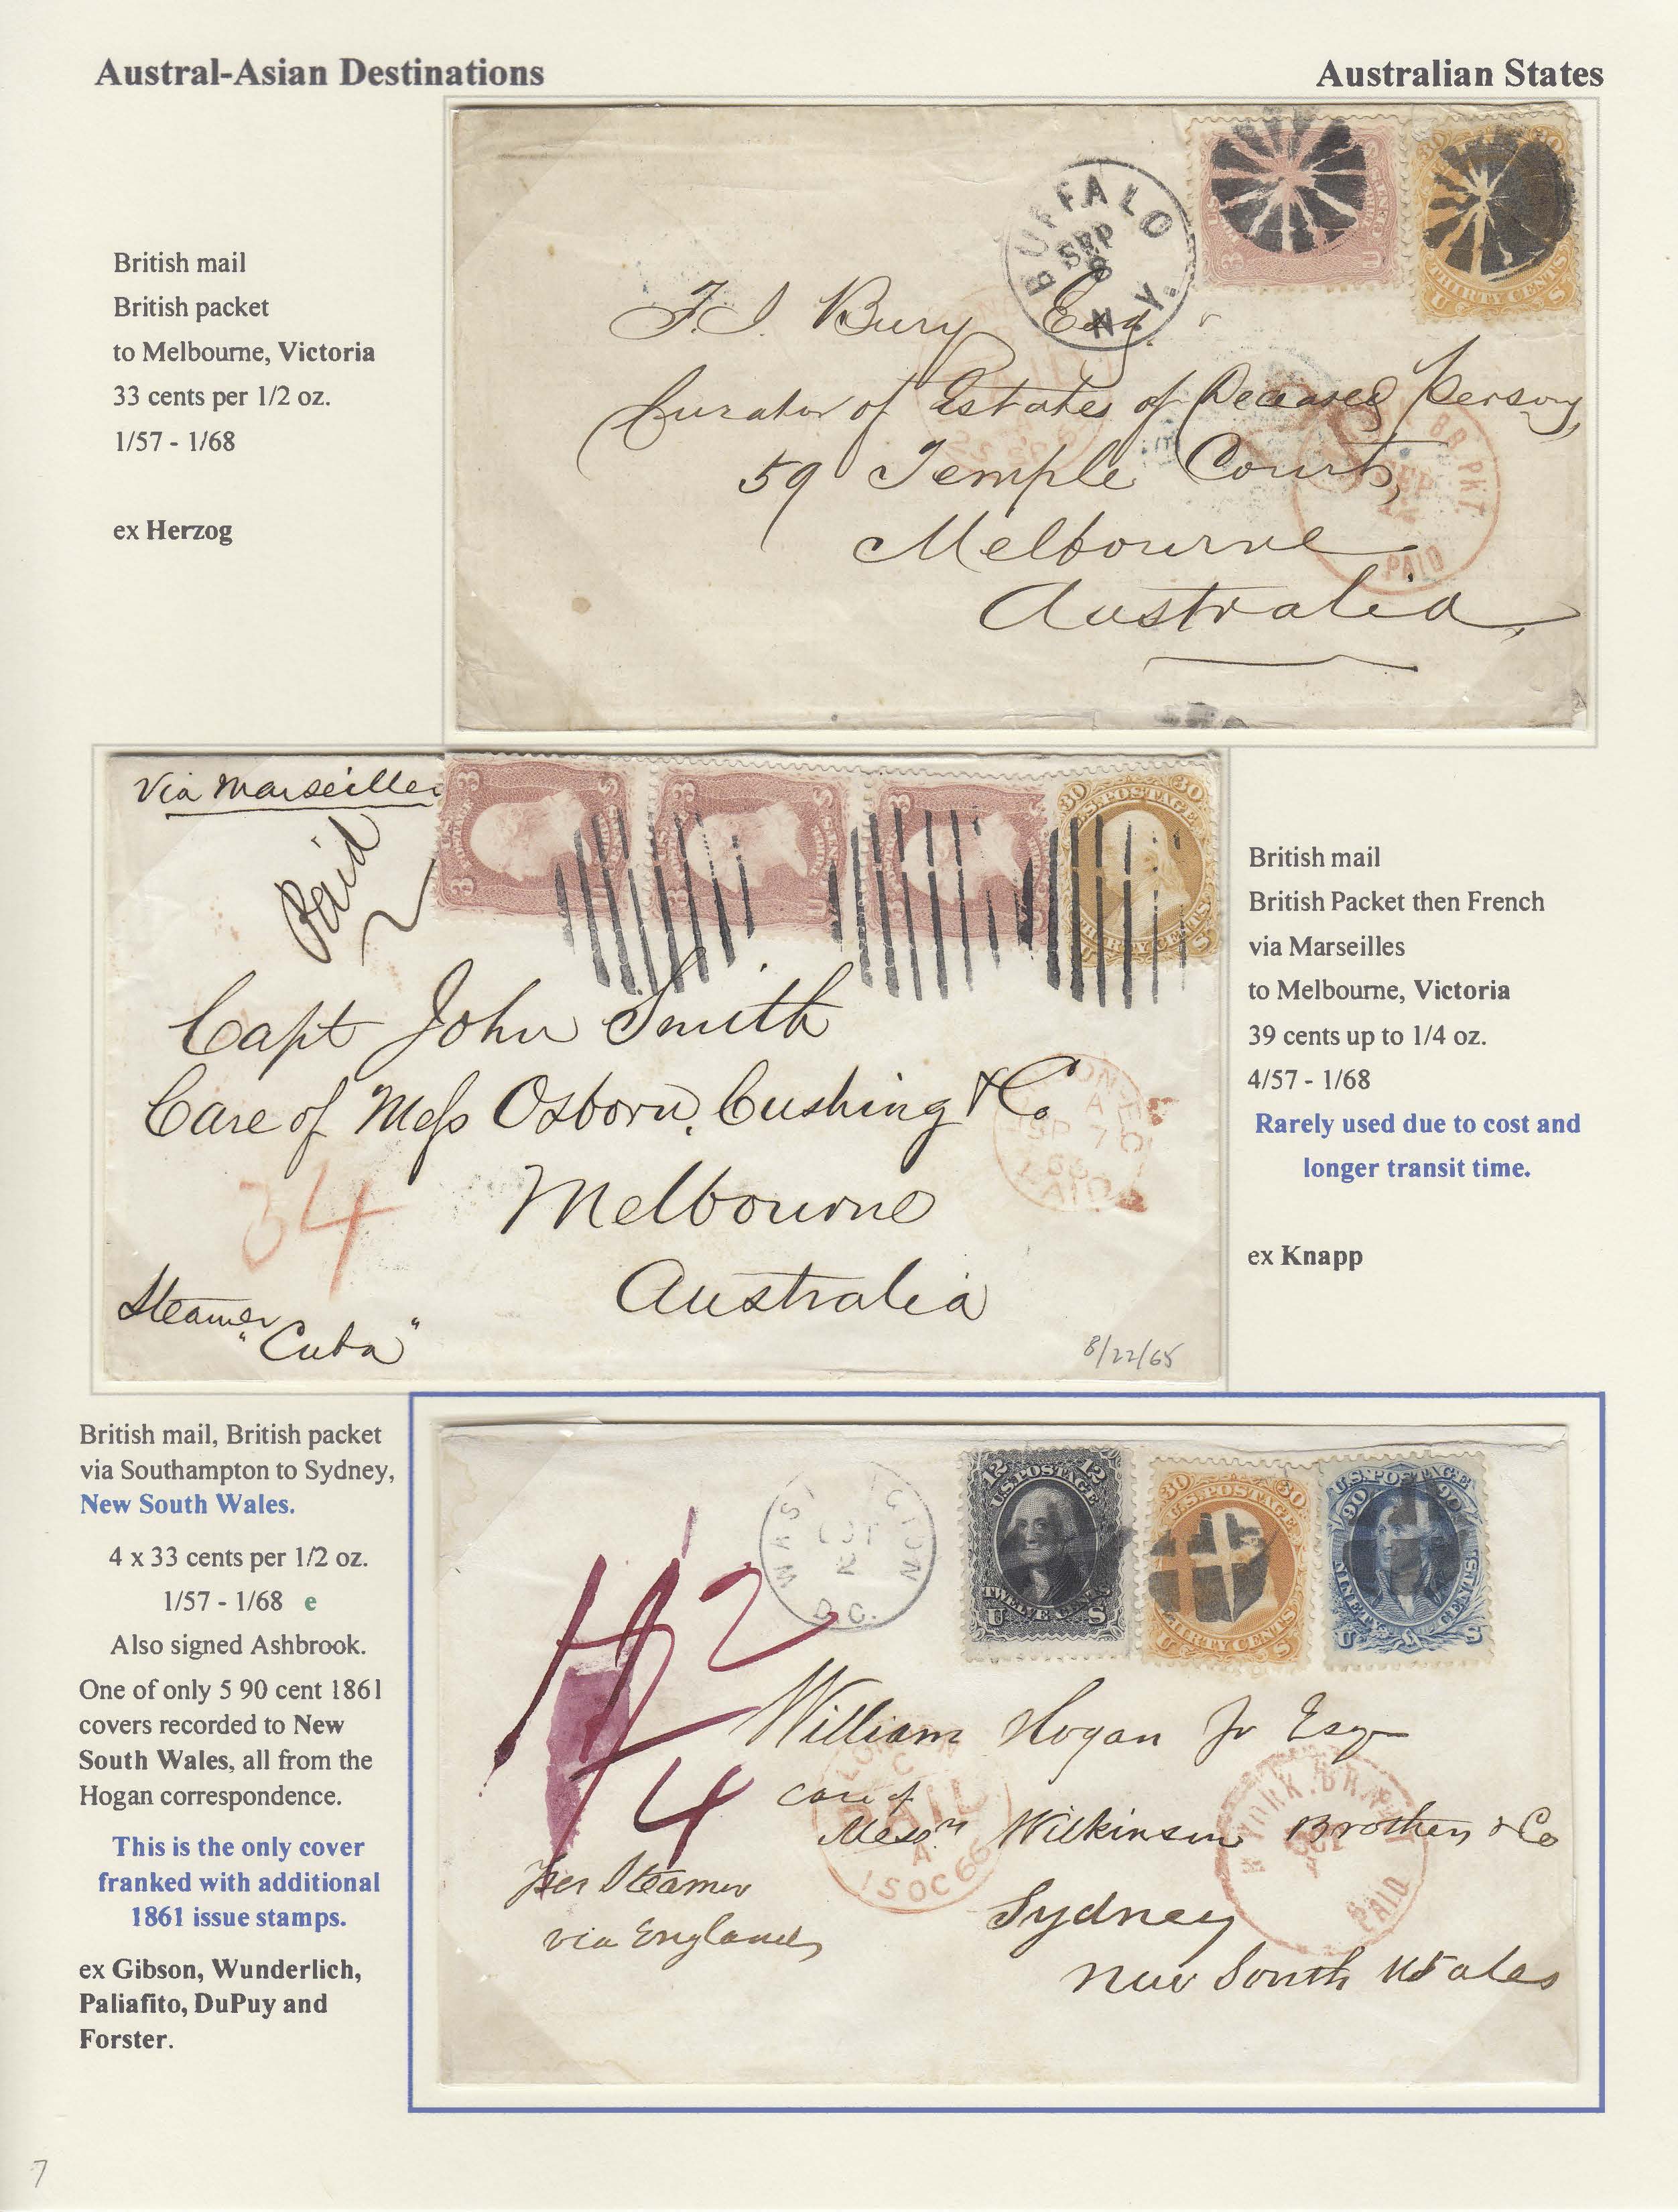 Austral-Asian Destinations
Australian States
British mail
British packet
to Melbourne, Victoria
33 cents per 1/2 oz.
1/57 - 1/68
ex Herzog
BUFFALO
SEP
8
N.Y.
3
30 30
THIRTY CENTS
U S
F. J. Bury Esq.
Curator of Estates of Deceased Persons,
59 Temple Court,
Melbourne
Australia,
BR. PKT
SEP
PAID
Via Marseilles
Paid
3 3 3
30 30
U.S. POSTAGE
THIRTY CENTS
Capt John Smith
Care of Mess Osborn, Cushing & Co
Melbourne
Australia
34
Steamer
"Cuba"
8/22/65
British mail
British Packet then French
via Marseilles
to Melbourne, Victoria
39 cents up to 1/4 oz.
4/57 - 1/68
Rarely used due to cost and
longer transit time.
ex Knapp
British mail, British packet
via Southampton to Sydney,
New South Wales.
4 x 33 cents per 1/2 oz.
1/57 - 1/68 e
Also signed Ashbrook.
One of only 5 90 cent 1861
covers recorded to New
South Wales, all from the
Hogan correspondence.
This is the only cover
franked with additional
1861 issue stamps.
ex Gibson, Wunderlich,
Paliafito, DuPuy and
Forster.
WASHINGTON
OCT
2
D.C.
12 12
U.S. POSTAGE
TWELVE CENTS
U S
30 30
U.S. POSTAGE
THIRTY CENTS
U S
U.S. POSTAGE
90 90
NINETY CENTS
U S
112
4
William Hogan Jr Esqr
care of
Messrs Wilkinson Brothers & Co
Sydney
New South Wales
Per Steamer
via England
LONDON
C
PAID
A
15 OC 66
YORK. BR. PKT
PAID
7